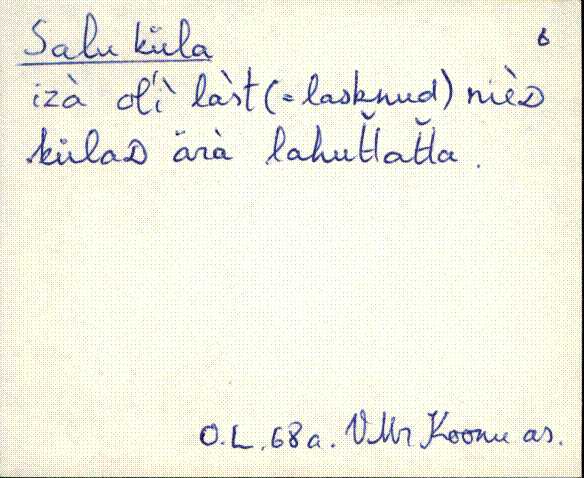 Salu küla 6
izà ol'ì làst (= lasknud) nièD
külaD ärà lahut̆lat̆la.
O.L. 68a. VMr Koonu as.